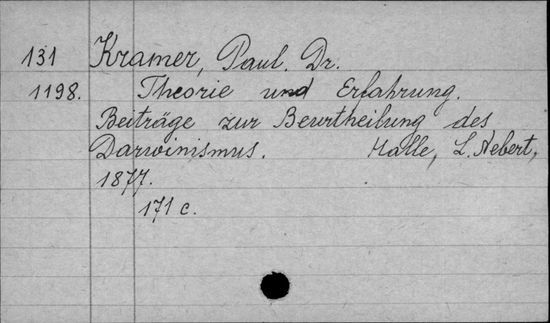 131 Kramer, Paul. Dr.
1198. Theorie und Erfahrung.
Beiträge zur Beurtheilung des
Darwinismus. Halle, L. Nebert,
1877.
171 c.